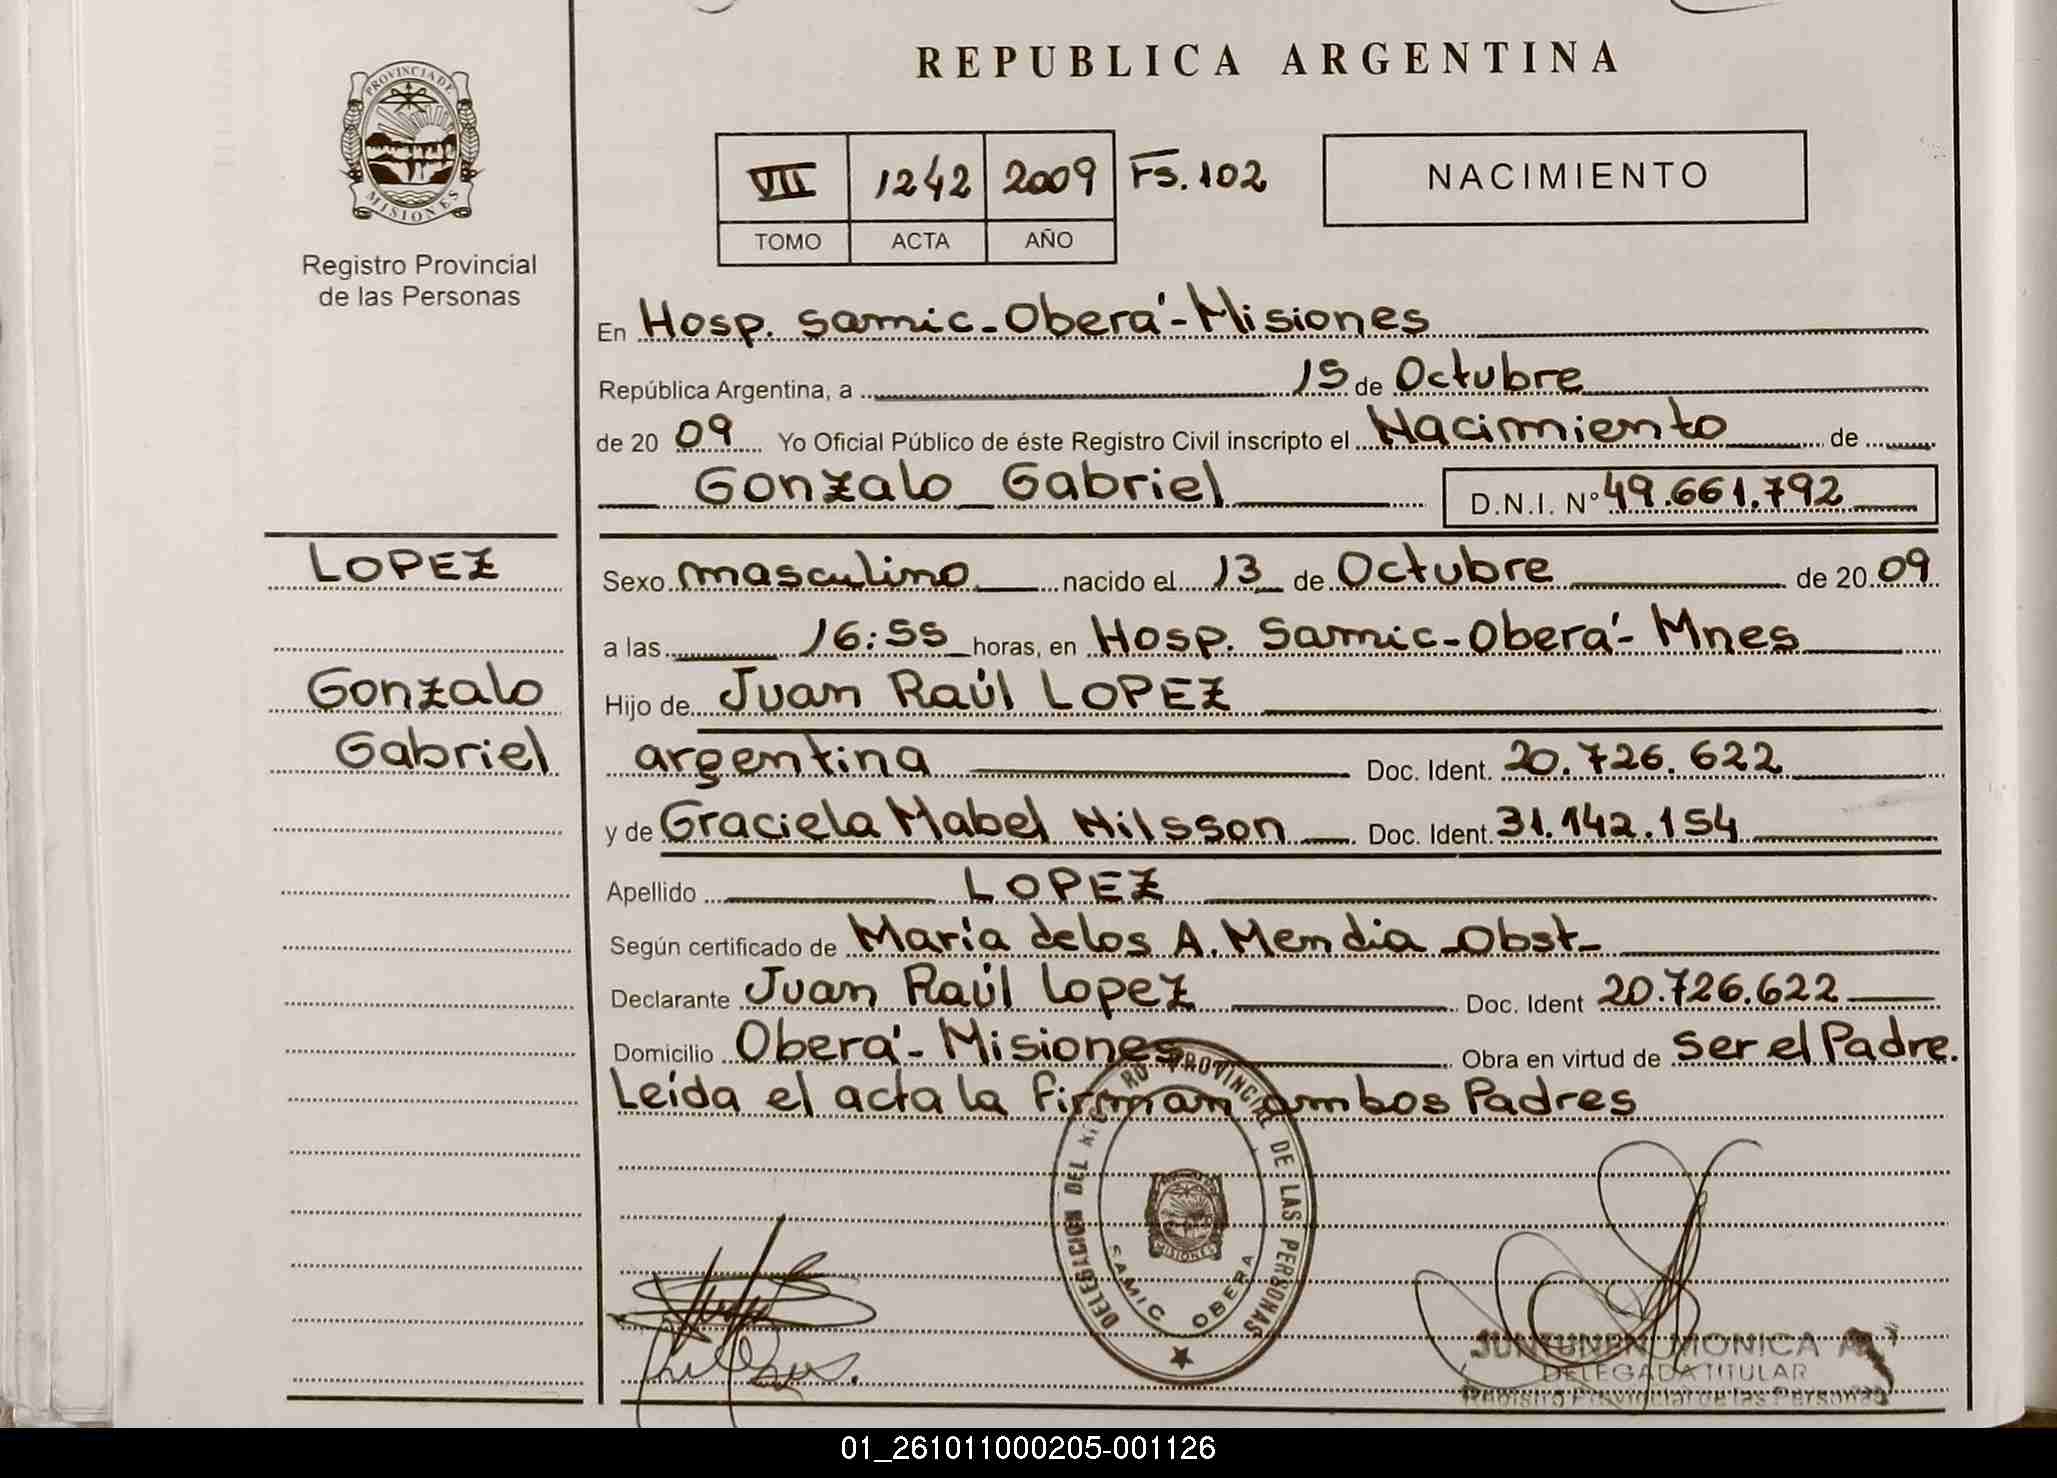 REPUBLICA ARGENTINA
PROVINCIA DE
MISIONES
Registro Provincial
de las Personas
VII 1242 2009 Fs. 102
TOMO ACTA AÑO
NACIMIENTO
En Hosp. Samic - Oberá - Misiones
República Argentina, a 15 de Octubre
de 20 09 Yo Oficial Público de éste Registro Civil inscripto el Nacimiento de
Gonzalo Gabriel D.N.I. Nº 49.661.792
LOPEZ
Gonzalo
Gabriel
Sexo masculino nacido el 13 de Octubre de 20 09
a las 16:55 horas, en Hosp. Samic - Oberá - Mnes
Hijo de Juan Raúl LOPEZ
argentina Doc. Ident. 20.726.622
y de Graciela Mabel Nilsson Doc. Ident. 31.142.154
Apellido LOPEZ
Según certificado de María de los A. Mendia - Obst -
Declarante Juan Raúl Lopez Doc. Ident 20.726.622
Domicilio Oberá - Misiones Obra en virtud de Ser el Padre.
Leída el acta la firman ambos Padres
DELEGACION DEL REGISTRO PROVINCIAL DE LAS PERSONAS
MISIONES
SAMIC OBERA
JUNTUNEN MONICA A.
DELEGADA TITULAR
Registro Provincial de las Personas
01_261011000205-001126